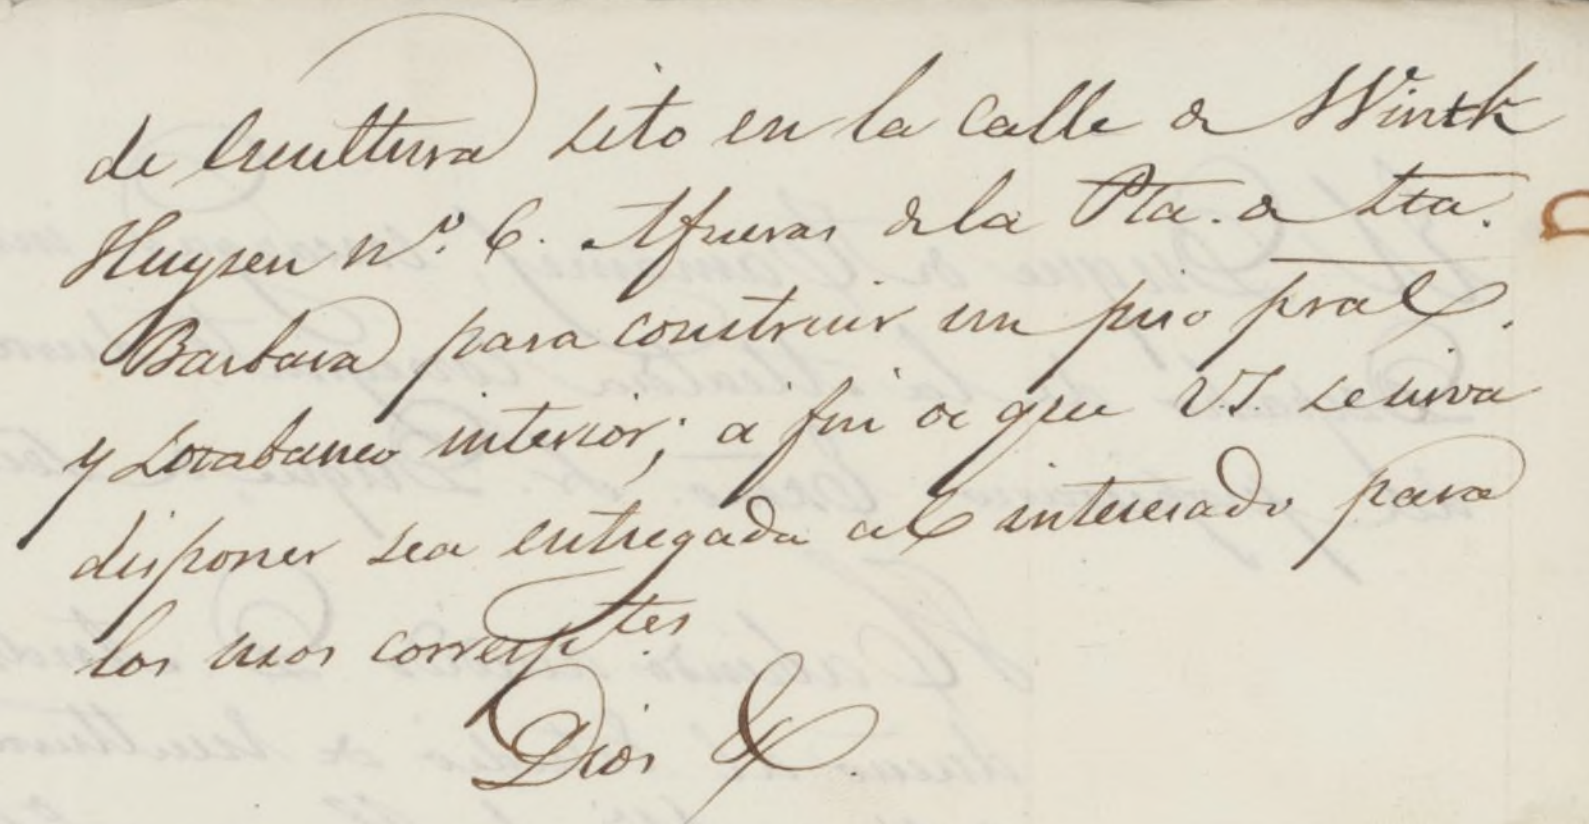 de Escultura sito en la calle de Wintk
Huysen nº. 6. Afueras de la Pta. de Sta.
Barbara para construir un piso pral.
y sotabanco interior; a fin de que V.S. se sirva
disponer sea entregada al interesado para
los usos correspites
Dios &.